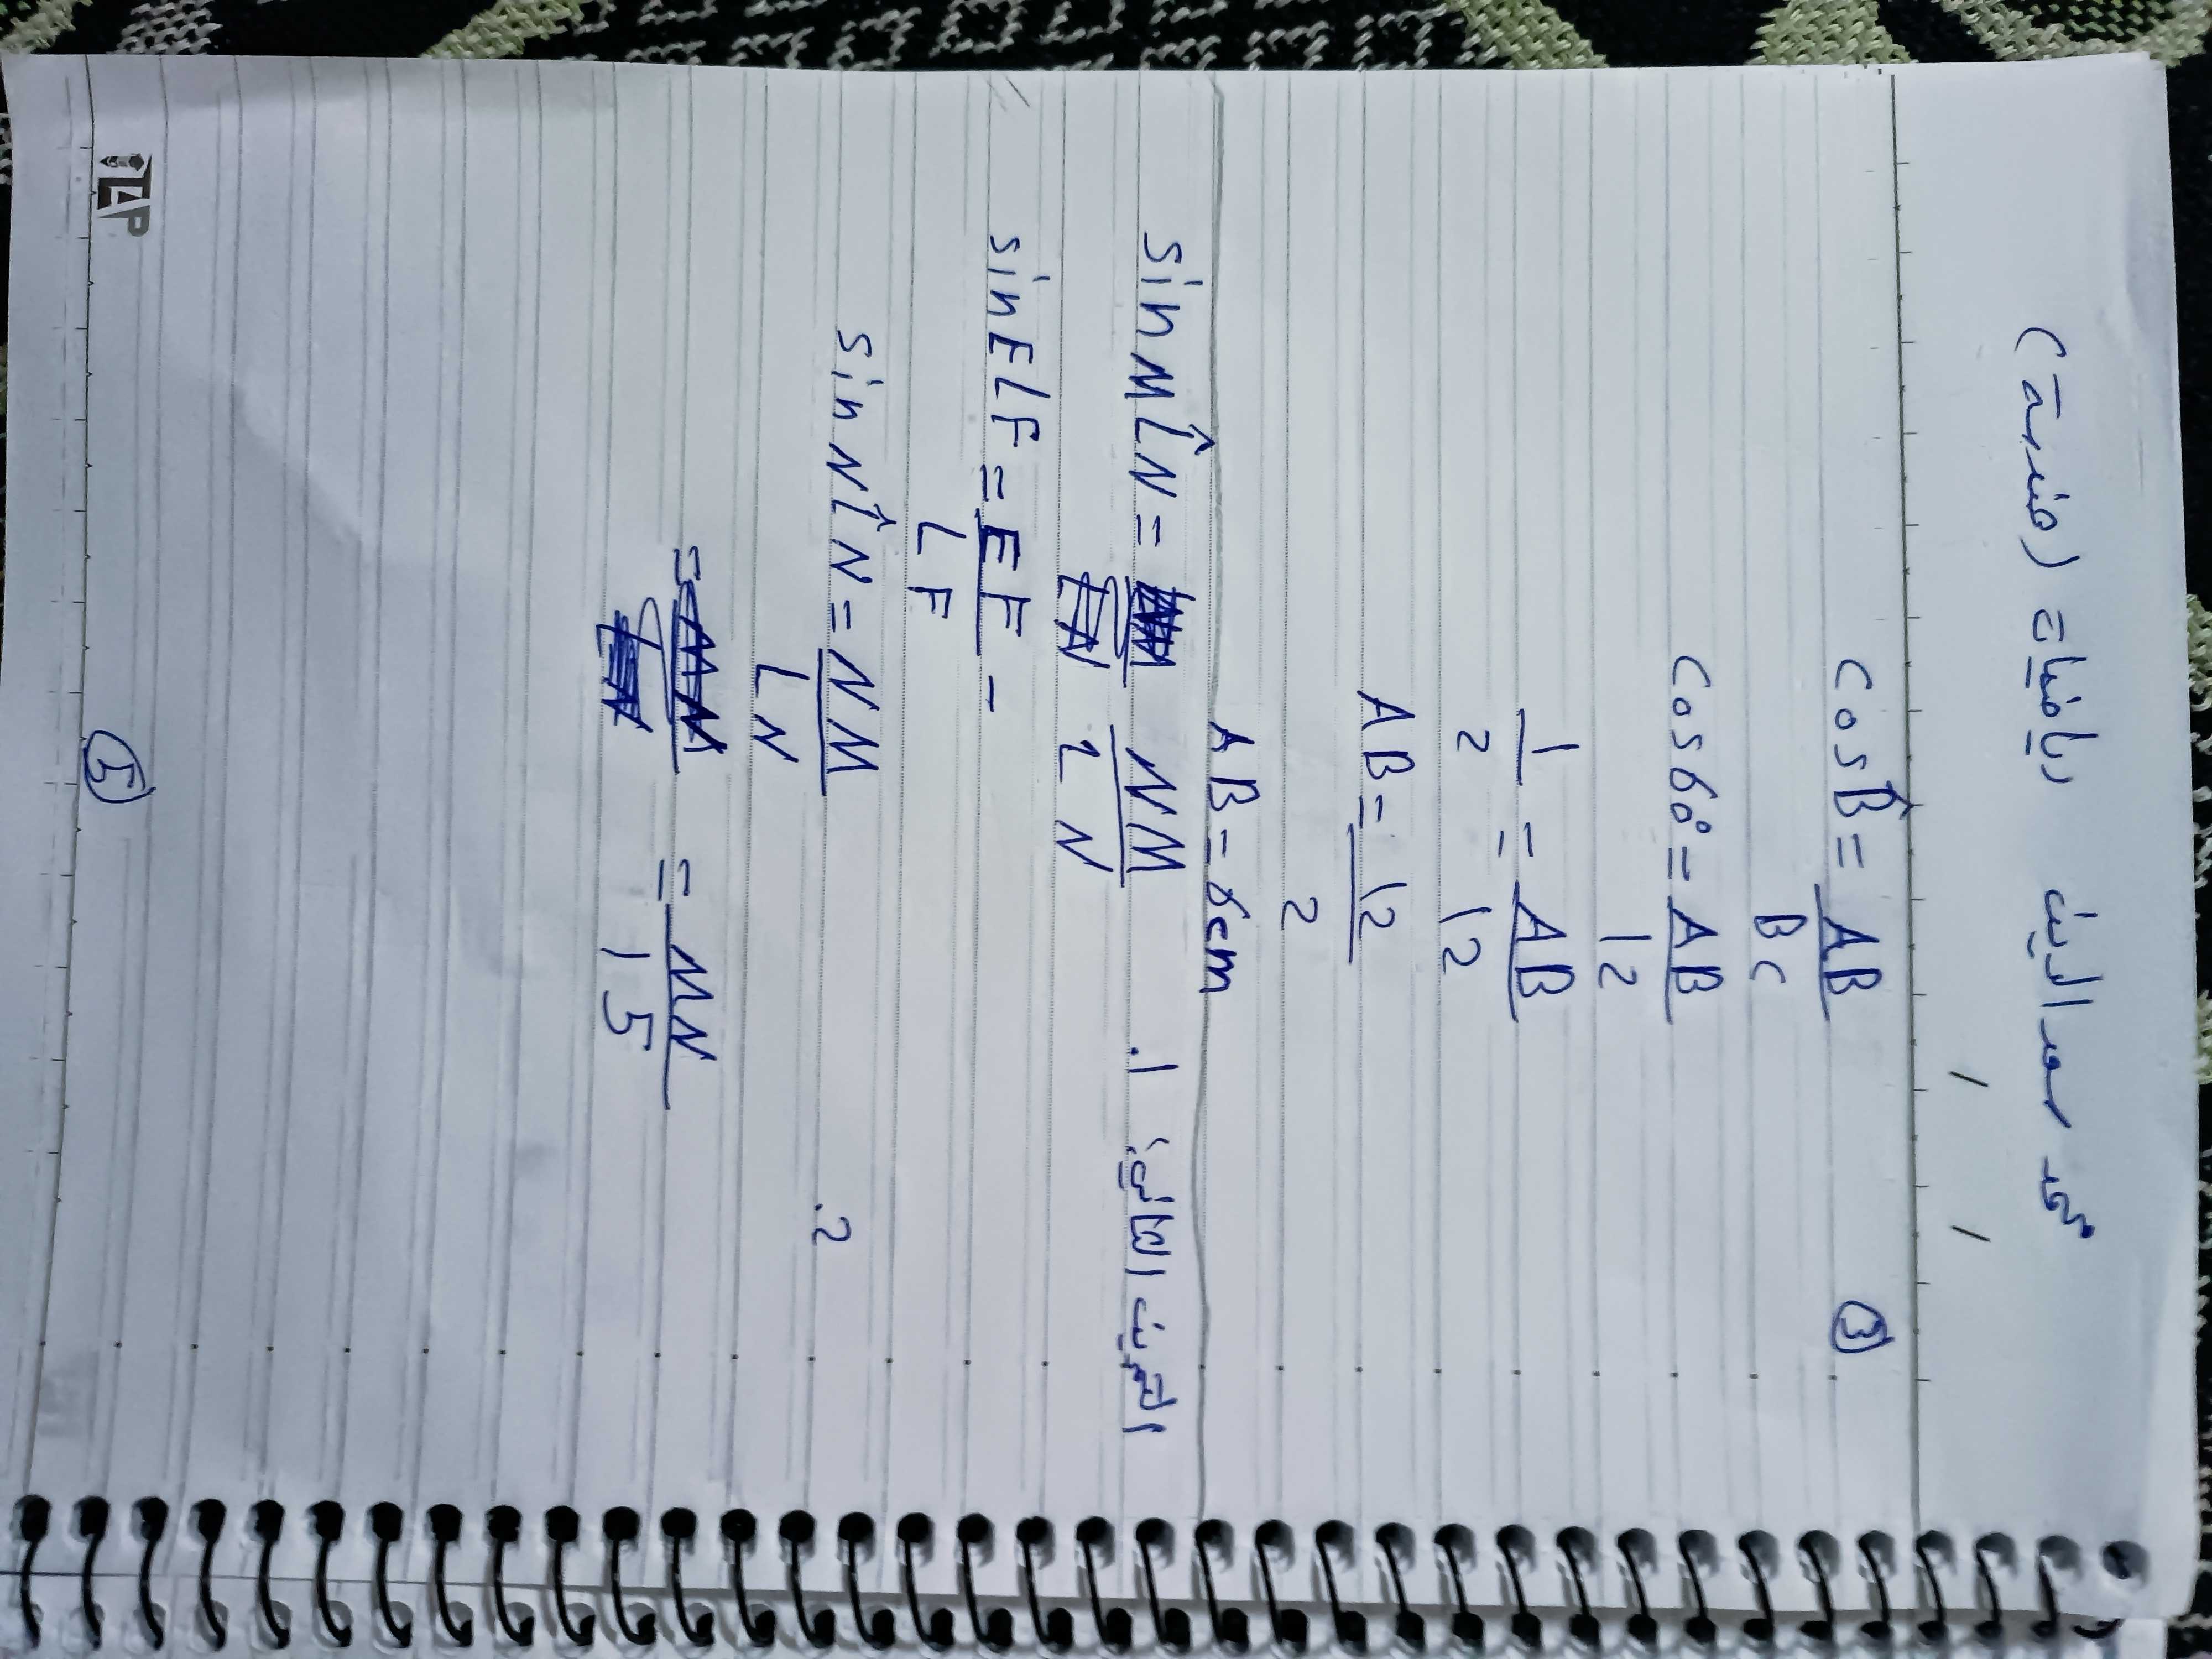 محمد سعد الدين رياضيات (هندسة)
/ /
③ cos B̂ = AB
BC
cos 60° = AB
12
1/2 = AB
12
AB = 12
2
AB = 6cm
التمرين الثاني: 1. sin ML̂N = NM
LN
sin ELF = EF -
LF
2. sin NL̂N = NM
LN
= MN
15
⑤
LAP